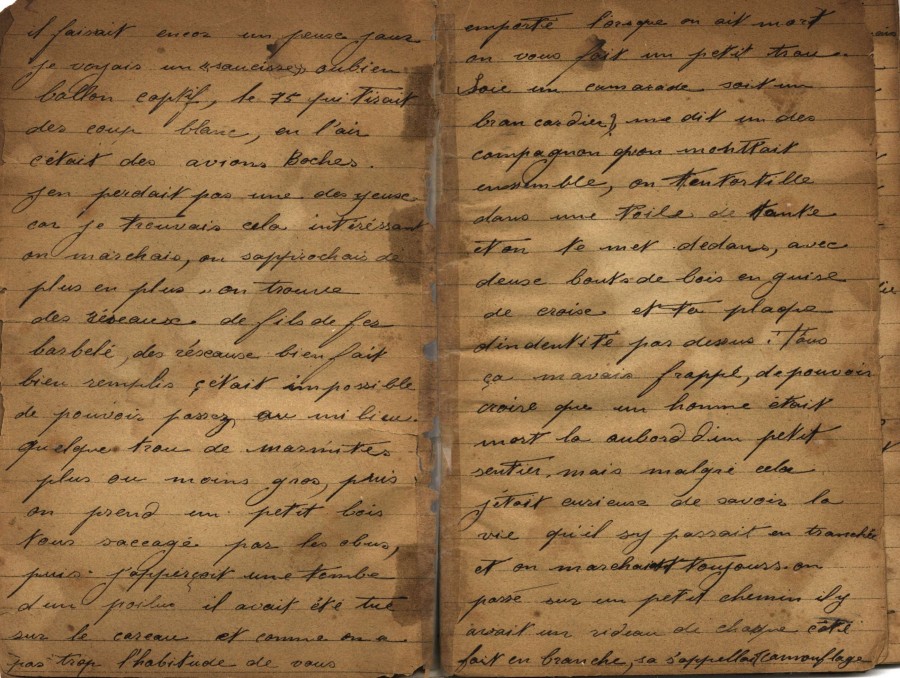 il faisait encor un peuse jour
je voyais un «saucisse» oubien
ballon captif, le 75 qui tirait
des coup blanc, en l'air
c'était des avions Boches.
j'en perdait pas une des yeuse
car je trouvais cela intéréssant
on marchais, on sapprochais de
plus en plus on trouve
des réseause de fils de fer
barbelé, des réseause bien fait
bien remplis ç'était impossible
de pouvois passez, au milieu
quelque trou de marmites
plus ou moins gros, puis
on prend un petit bois
tous saccagé par les obus,
puis j'apperçoit une tombe
d'un poilu il avait été tué
sur le careau et comme on a
pas trop l'habitude de vous
emporté l'orsque on ait mort
on vous fait un petit trou.
Soie un camarade soit un
brancardier, me dit un des
compagnon qu'on monttait
ensemble, on t'entortille
dans une toile de tante
et on te met dedans, avec
deuse bouts de bois en guise
de croise et ta plaque
d'indentité par dessus ! Tous
ça mavais frappé, de pouvoir
croire que un homme était
mort la aubord d'un petit
sentier, mais malgré cela
j'était curieuse de savoir la
vie qu'il sy passait en tranché
et on marchait toujours on
passe sur un petit chemin il y
avait un rideau de chaque côté
fait en branche, sa s'appellait camouflage